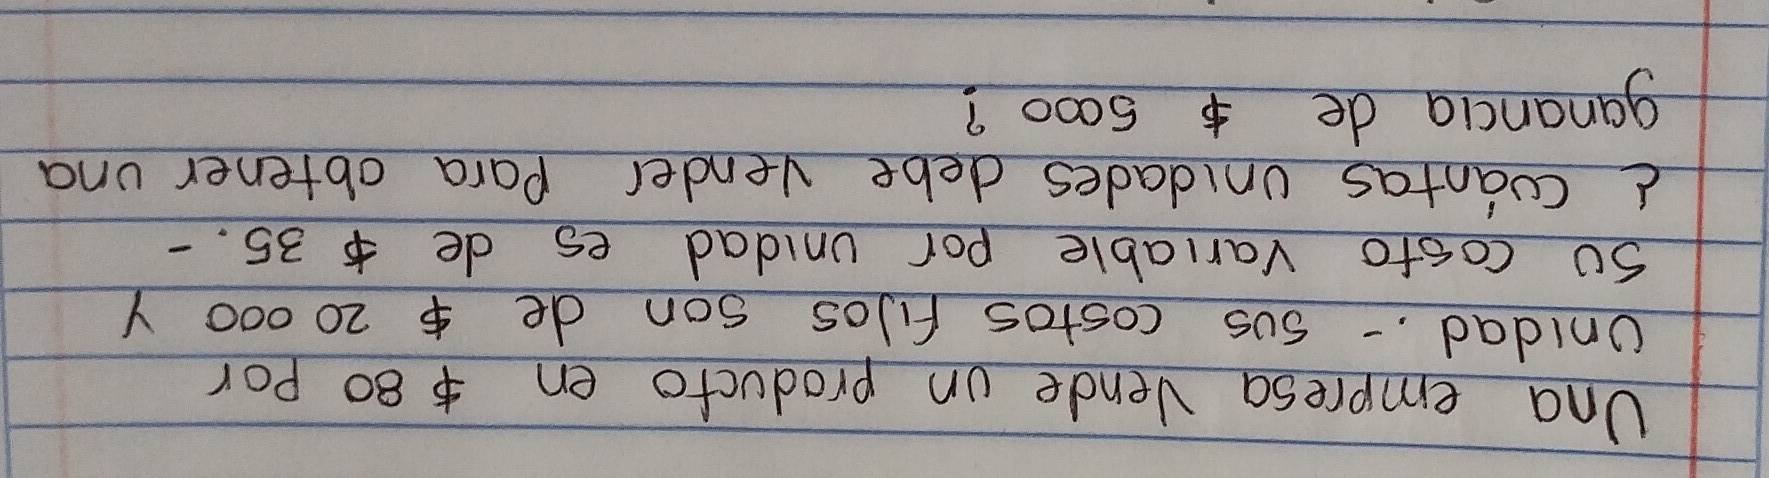 Una empresa vende un producto en $ 80 por
unidad.- sus costos fijos son de $ 20 000 y
su costo variable por unidad es de $ 35.-
¿ cuántas unidades debe vender para obtener una
ganancia de $ 5000 ?